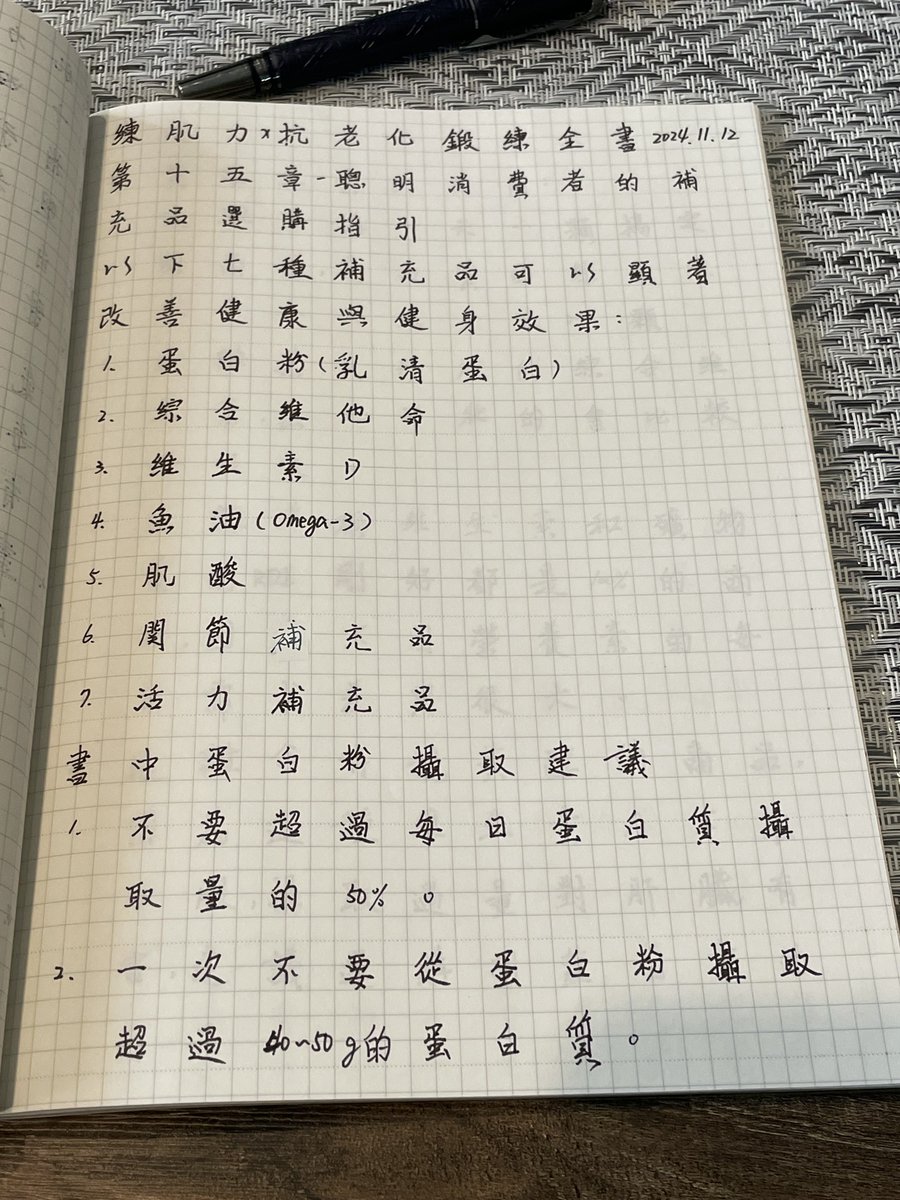 練肌力x抗老化鍛練全書2024.11.12
第十五章-聰明消費者的補
充品選購指引
以下七種補充品可以顯著
改善健康與健身效果：
1. 蛋白粉(乳清蛋白)
2. 綜合維他命
3. 維生素D
4. 魚油(Omega-3)
5. 肌酸
6. 関節補充品
7. 活力補充品
書中蛋白粉攝取建議
1. 不要超過每日蛋白質攝
取量的50%。
2. 一次不要從蛋白粉攝取
超過40~50g的蛋白質。